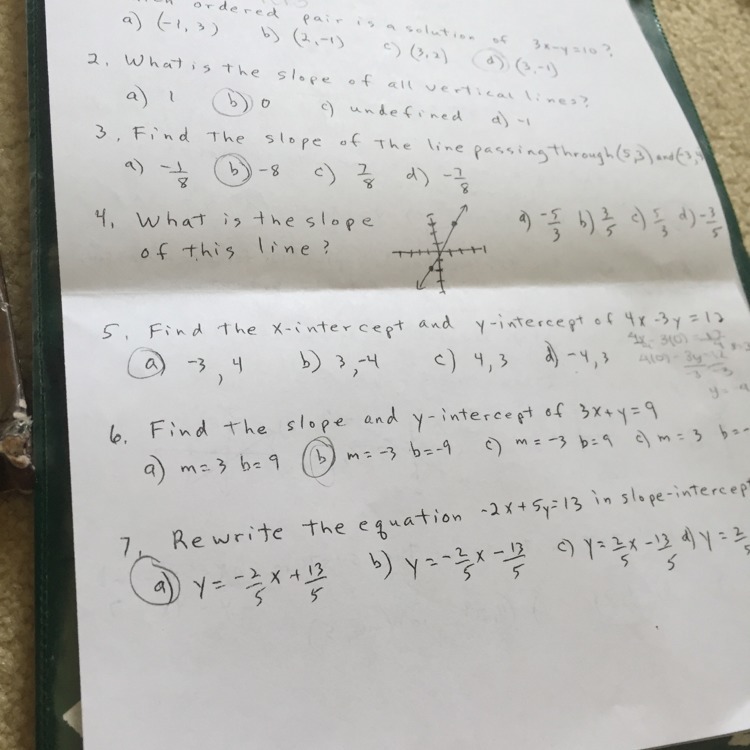 ordered pair is a solution of 3x-y=10?
a) (-1, 3) b) (2, -1) c) (3, 2) d) (3, -1)
2. What is the slope of all vertical lines?
a) 1 b) 0 c) undefined d) -1
3. Find the slope of the line passing through (5,3) and (-3,
a) -1/8 b) -8 c) 7/8 d) -7/8
4. What is the slope
of this line?
a) -5/3 b) 3/5 c) 5/3 d) -3/5
5. Find the x-intercept and y-intercept of 4x-3y=12
a) -3, 4 b) 3, -4 c) 4, 3 d) -4, 3
6. Find the slope and y-intercept of 3x+y=9
a) m=3 b=9 b) m=-3 b=-9 c) m=-3 b=9 c) m=3 b=-
7. Rewrite the equation -2x+5y=13 in slope-intercept
a) y=-2/5x+13/5 b) y=-2/5x-13/5 c) y=2/5x-13/5 d) y=2/5